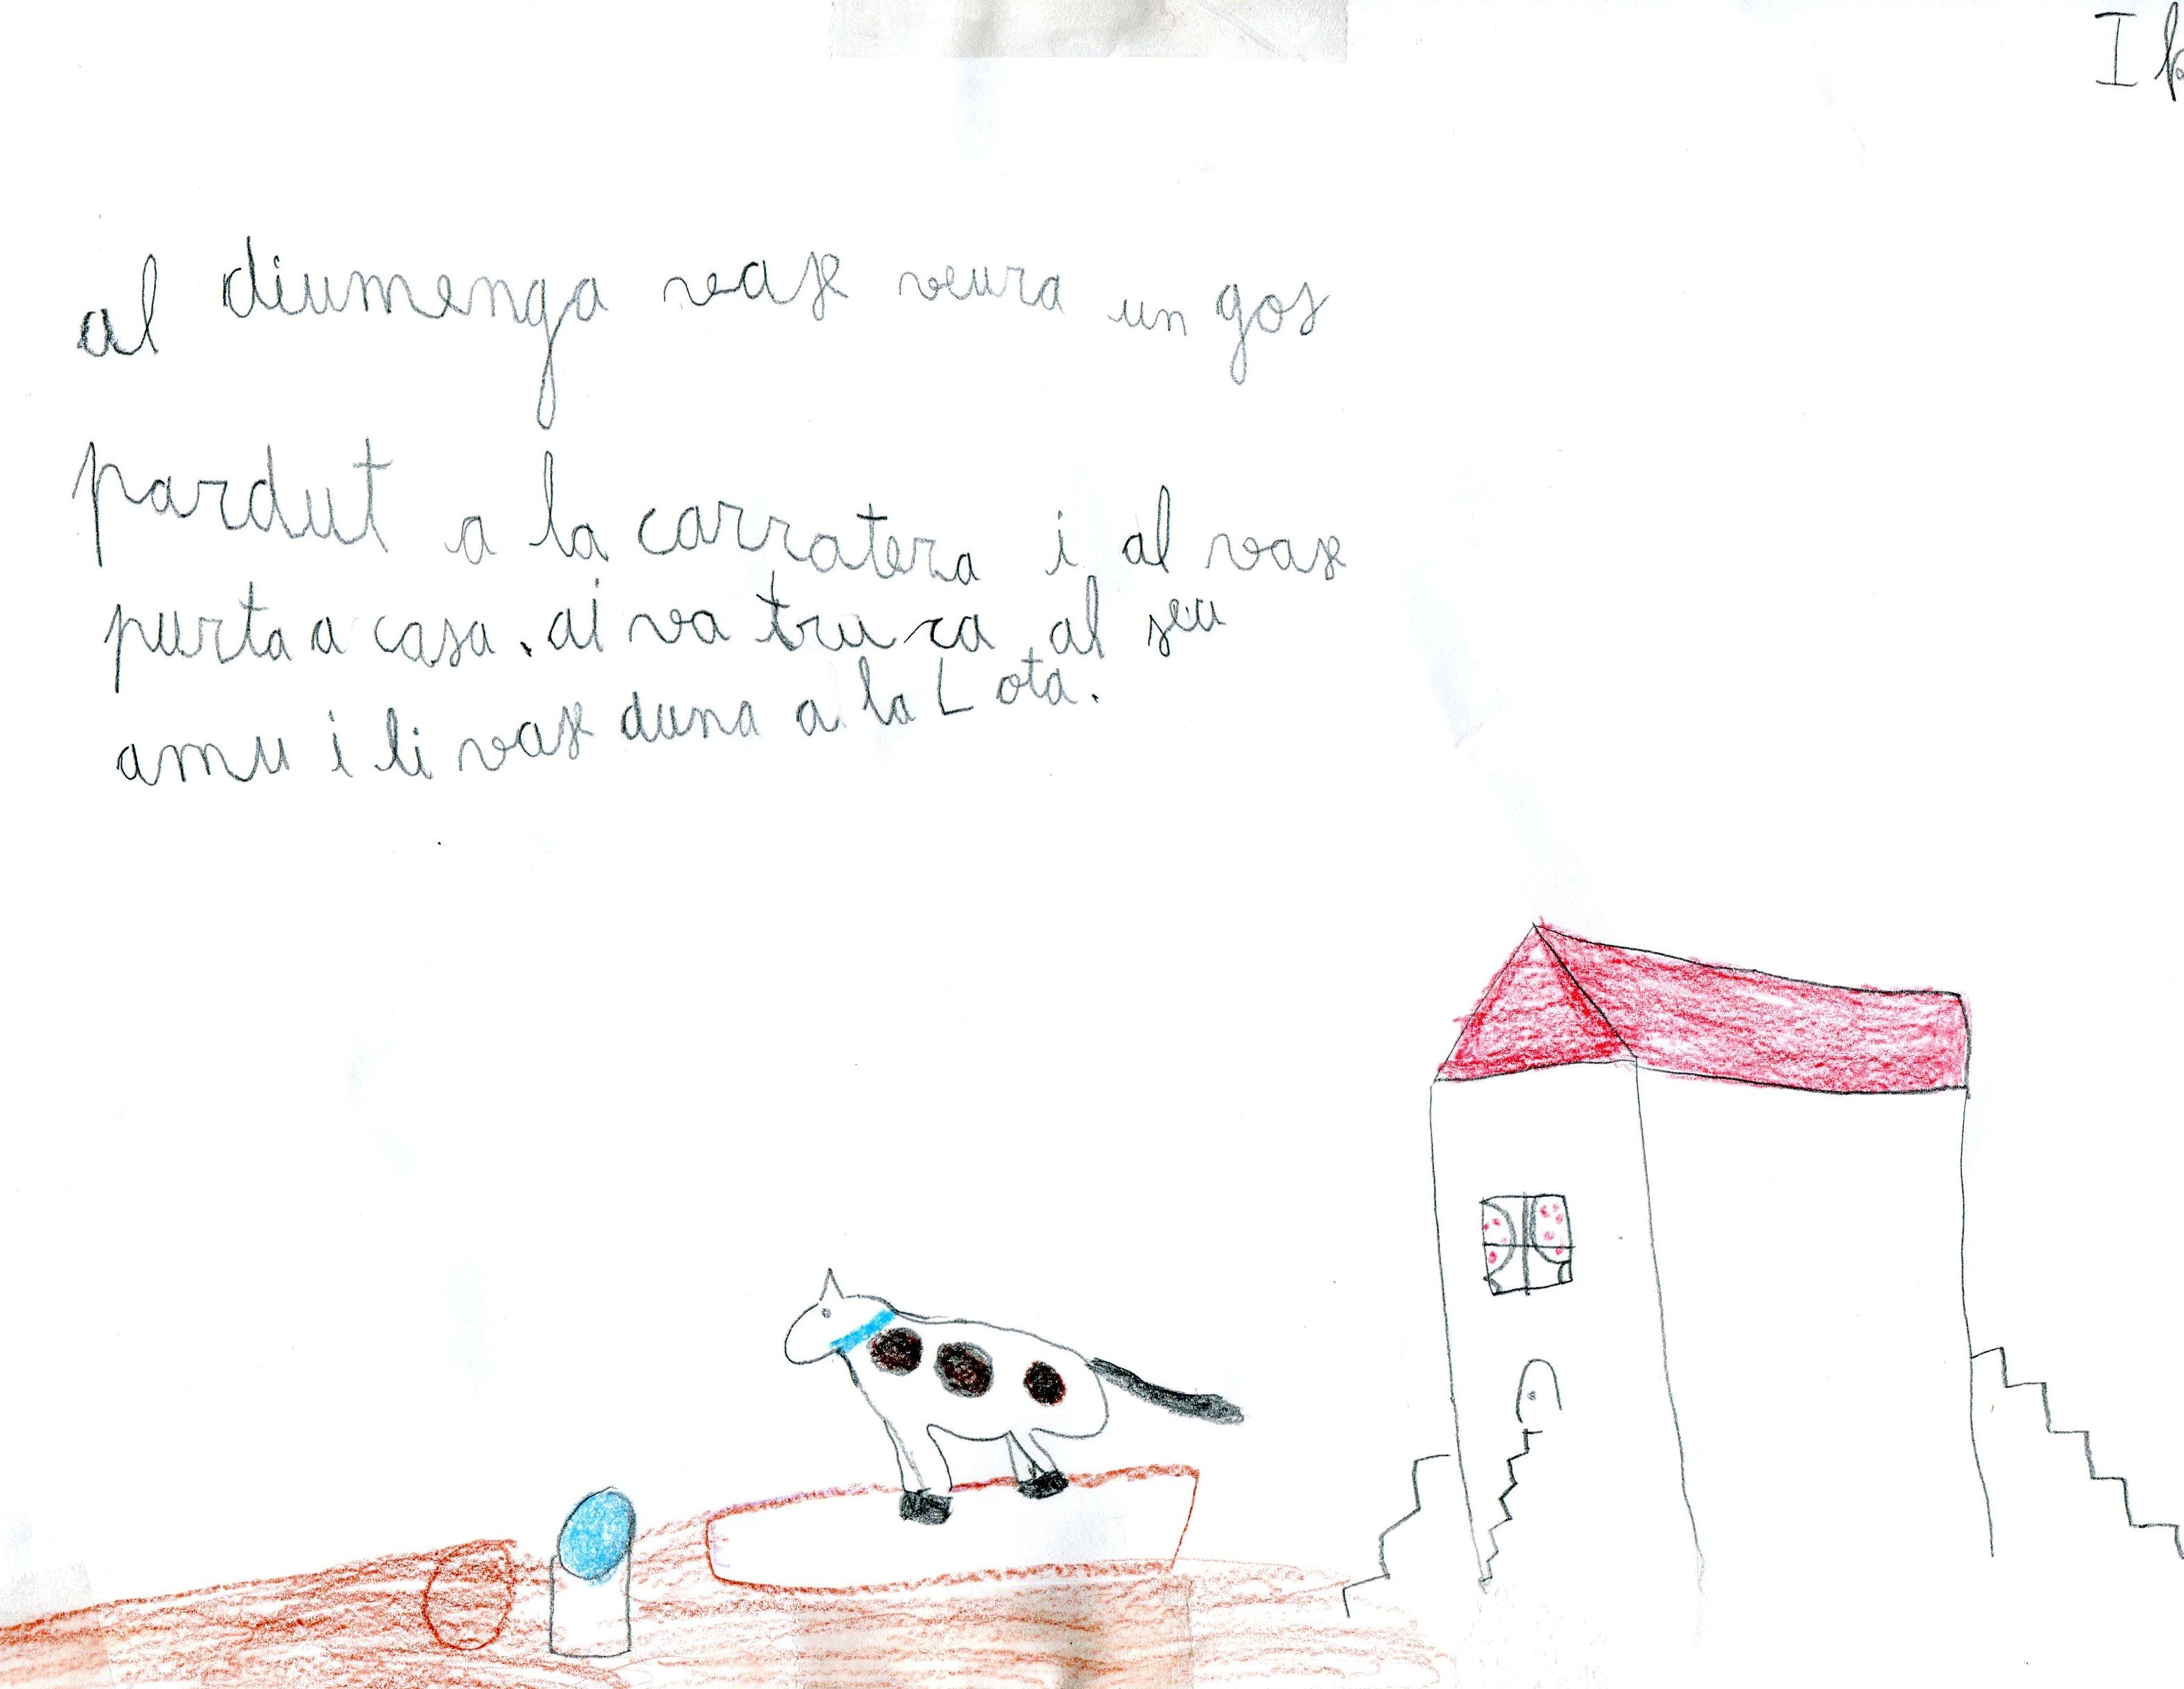 al diumenga vax veura un gos
pardut a la carratera i al vax
purta a casa. ai va truca al seu
amu i li vax duna a la Lota.